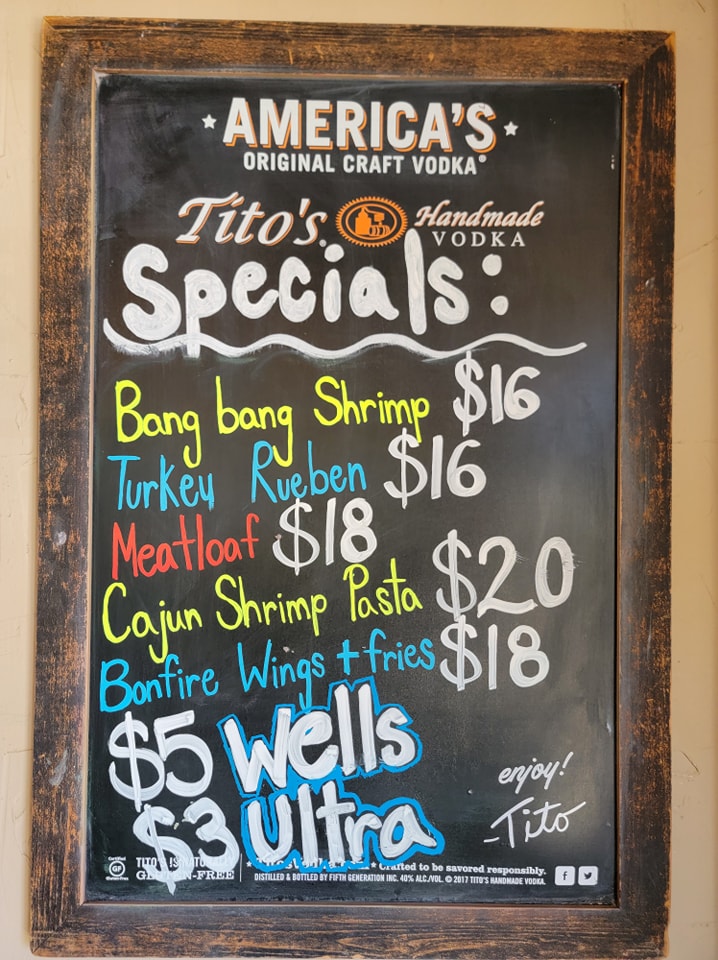 AMERICA'S
ORIGINAL CRAFT VODKA®
Tito's Handmade
VODKA
Specials:
Bang bang Shrimp $16
Turkey Rueben $16
Meatloaf $18
Cajun Shrimp Pasta $20
Bonfire Wings + fries $18
$5 Wells
$3 Ultra
enjoy!
-Tito
Certified
GF
Gluten-Free
TITO'S IS NATURALLY
GLUTEN-FREE
Crafted to be savored responsibly.
DISTILLED & BOTTLED BY FIFTH GENERATION INC. 40% ALC./VOL. © 2017 TITO'S HANDMADE VODKA.